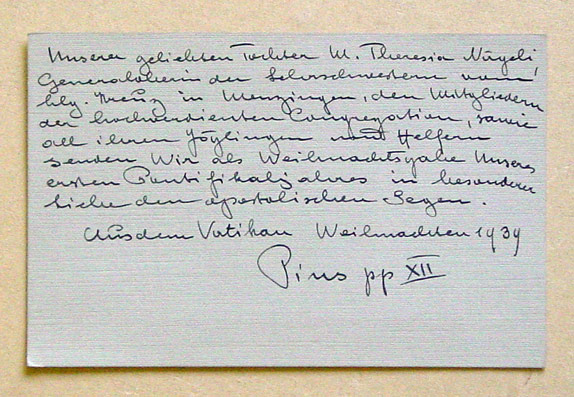 Unserer geliebten Tochter M. Theresia Nägeli,
Generaloberin der Lehrschwestern vom
hlg. Kreuz in Menzingen, den Mitgliedern
der hochverdienten Congregation, sowie
all ihren Zöglingen und Helfern
senden Wir als Weihnachtsgabe Unseres
ersten Pontifikatsjahres in besonderer
Liebe den apostolischen Segen.
Aus dem Vatikan Weihnachten 1939
Pius pp XII